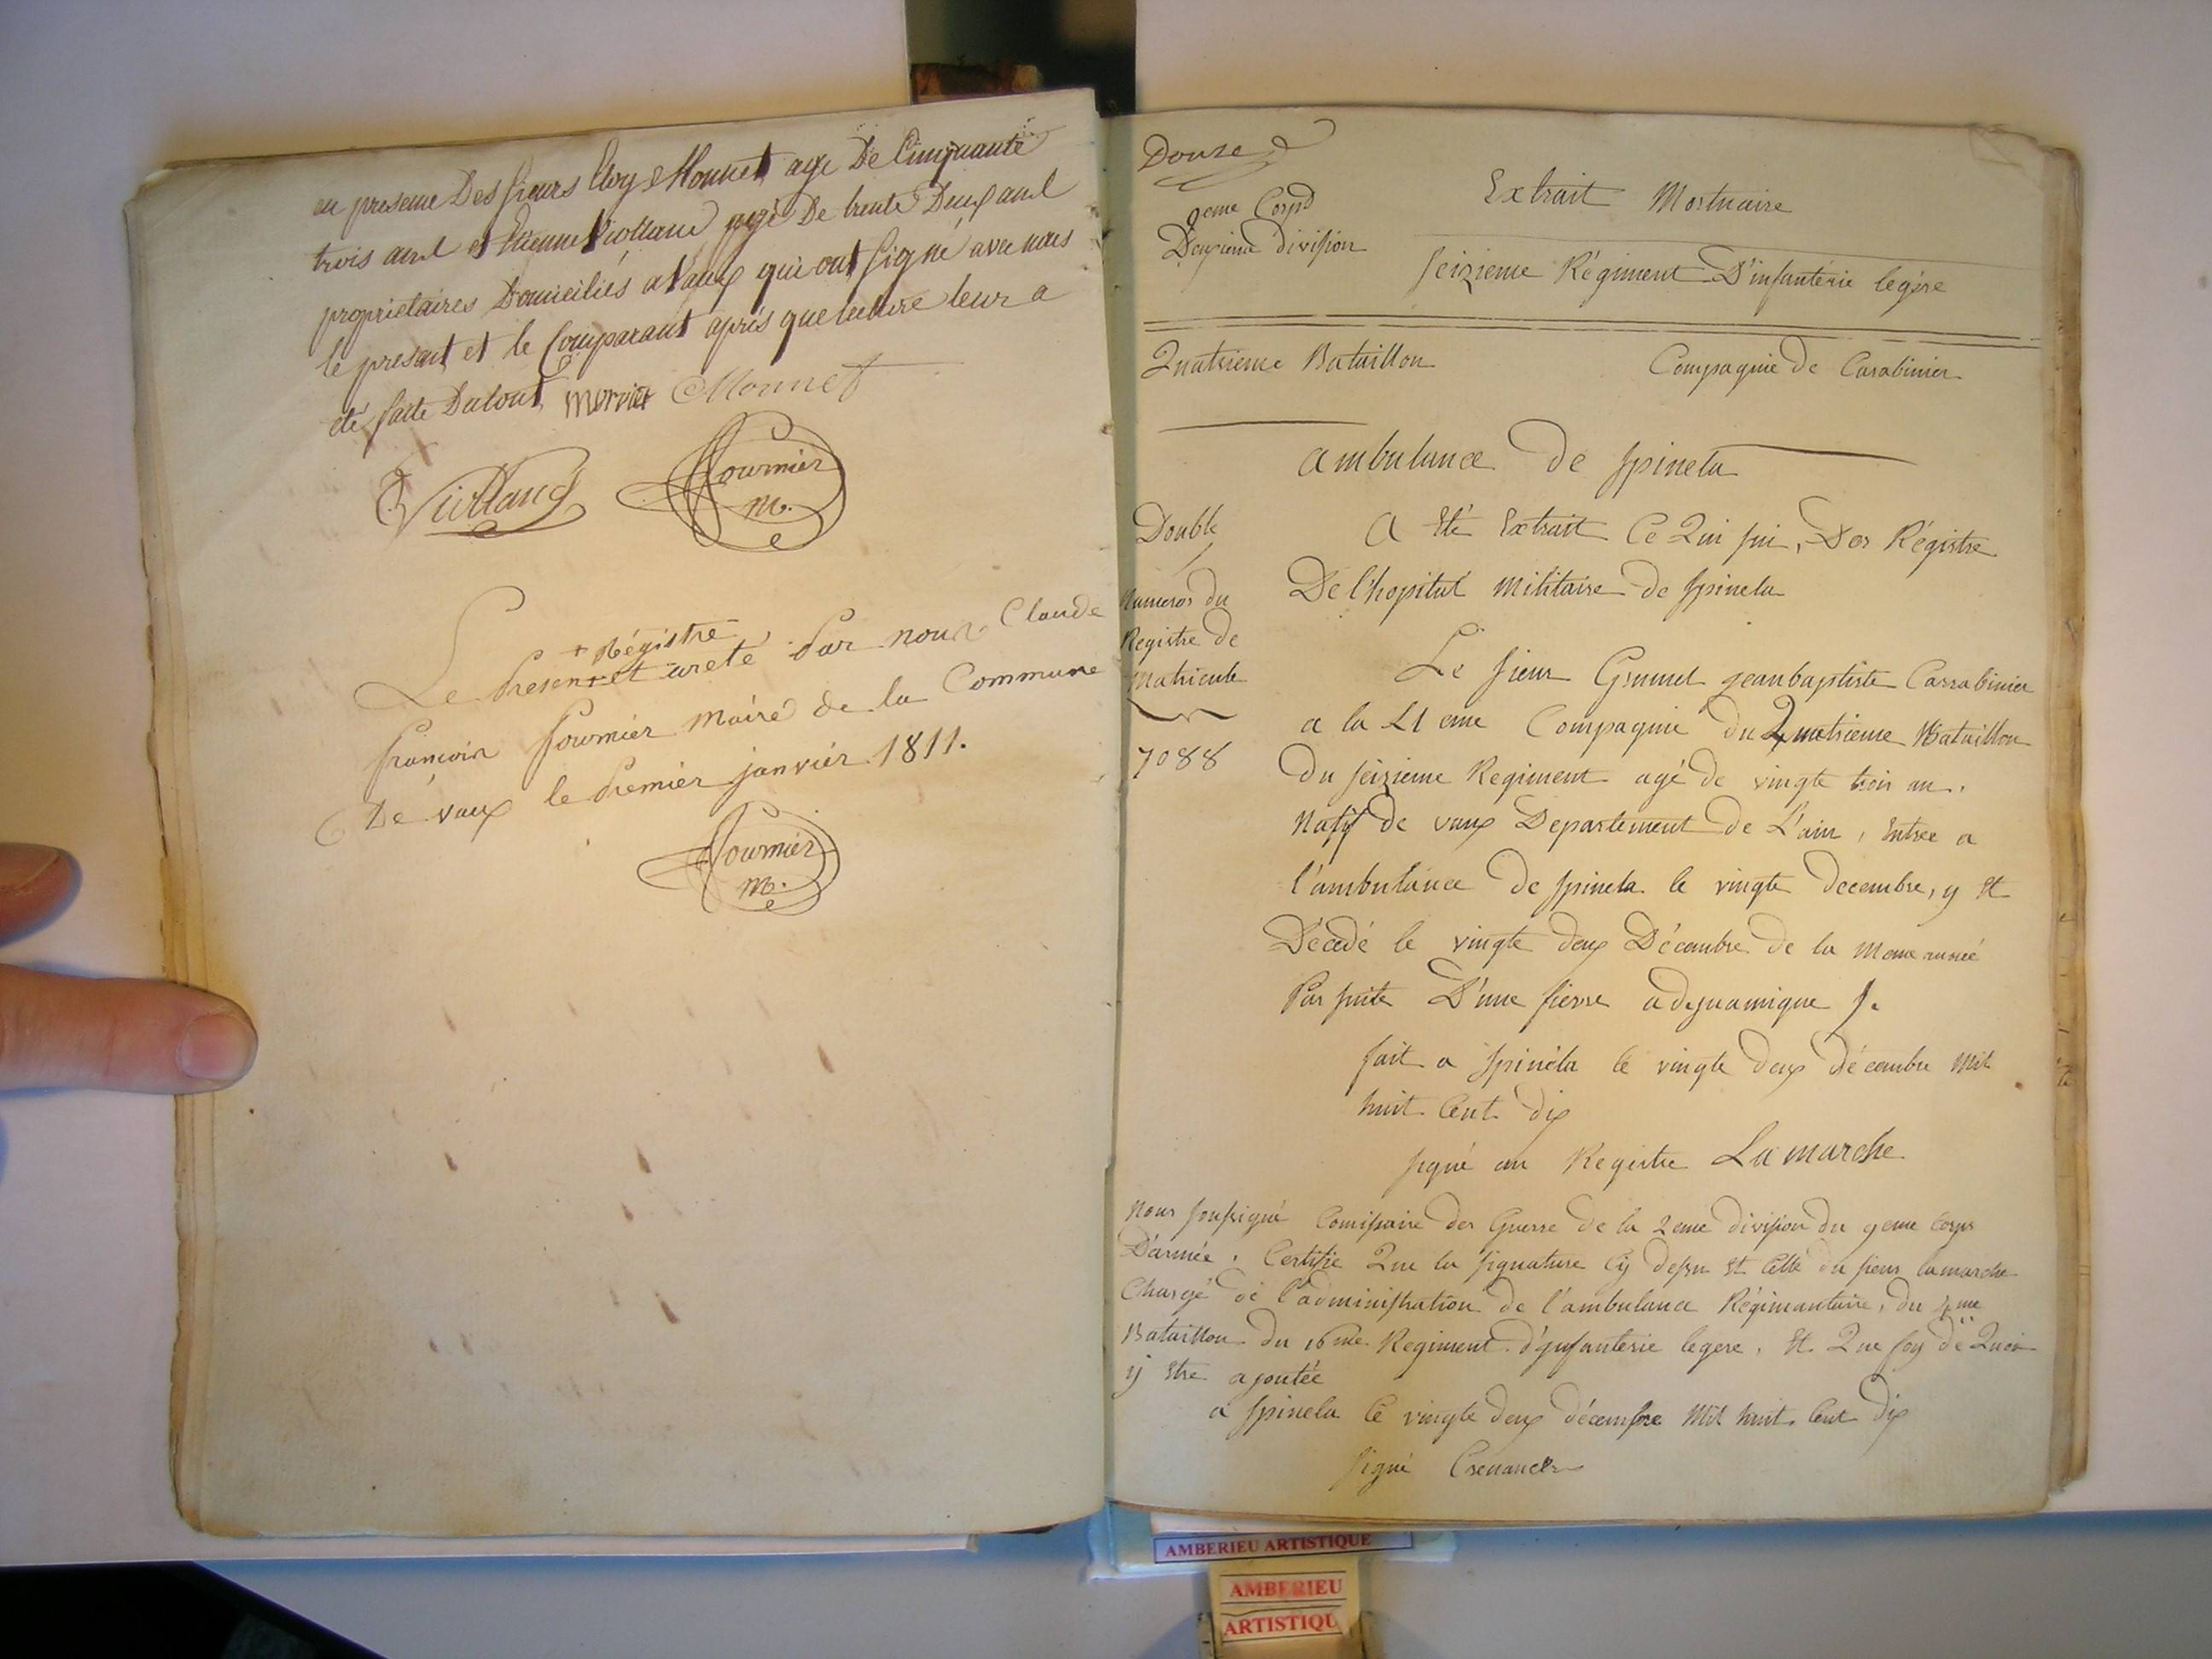 en presence Des sieurs Eloy Monnet age De Cinquante
trois ans et Etienne Violland agé De trente Deux ans
proprietaires Domiciliés a Vaux qui ont signé avec nous
le present et le Comparant après que lecture leur a
été faite Du tout Monnet
E. Violland Fournier m.
+ Régistre
Le Present et areté Par nous Claude
françois fournier Maire de la Commune
De vaux le Premier janvier 1811.
Fournier m.
Douze
Extrait Mortuaire
9eme Corps
Deuxieme Division
Seizieme Régiment D'infanterie legère
Quatrieme Bataillon Compagnie De Carabinier
ambulance De Spineta
Double
A Eté Extrait Ce Qui sui, Des Régistre
De l'hopital Militaire De Spineta
Numeros du
Registre De
Matricule
7088
Le sieur jeanbaptiste Carrabinier
a la Compagnie Du Quatrieme Bataillon
Du seizieme Regiment agé De vingte trois an,
Natif De vaux Departement De L'ain, Entree a
l'ambulance De Spineta le vingte decembre, y Et
Décedé le vingte deux Décembre De la Meme année
Par suite D'une fievre adynamique
fait a Spineta le vingte deux décembre Mil
huit Cent dix
signé au Registre Lamarche
Nous soussigné Comissaire des Guerre De la 2eme division Du 9eme Corps
D'armée, Certifie Que la signature Cy dessu Et Celle du sieur lamarche
Chargé de l'administration De l'ambulance Régimantaire, Du 4me
Bataillon Du 16me Regiment d'ynfanterie legere, Et Que foy De Quoi
y Etre ajoutée
a Spineta Ce vingte deux décembre Mil huit Cent Dix
signé
AMBERIEU ARTISTIQUE
AMBERIEU
ARTISTIQU